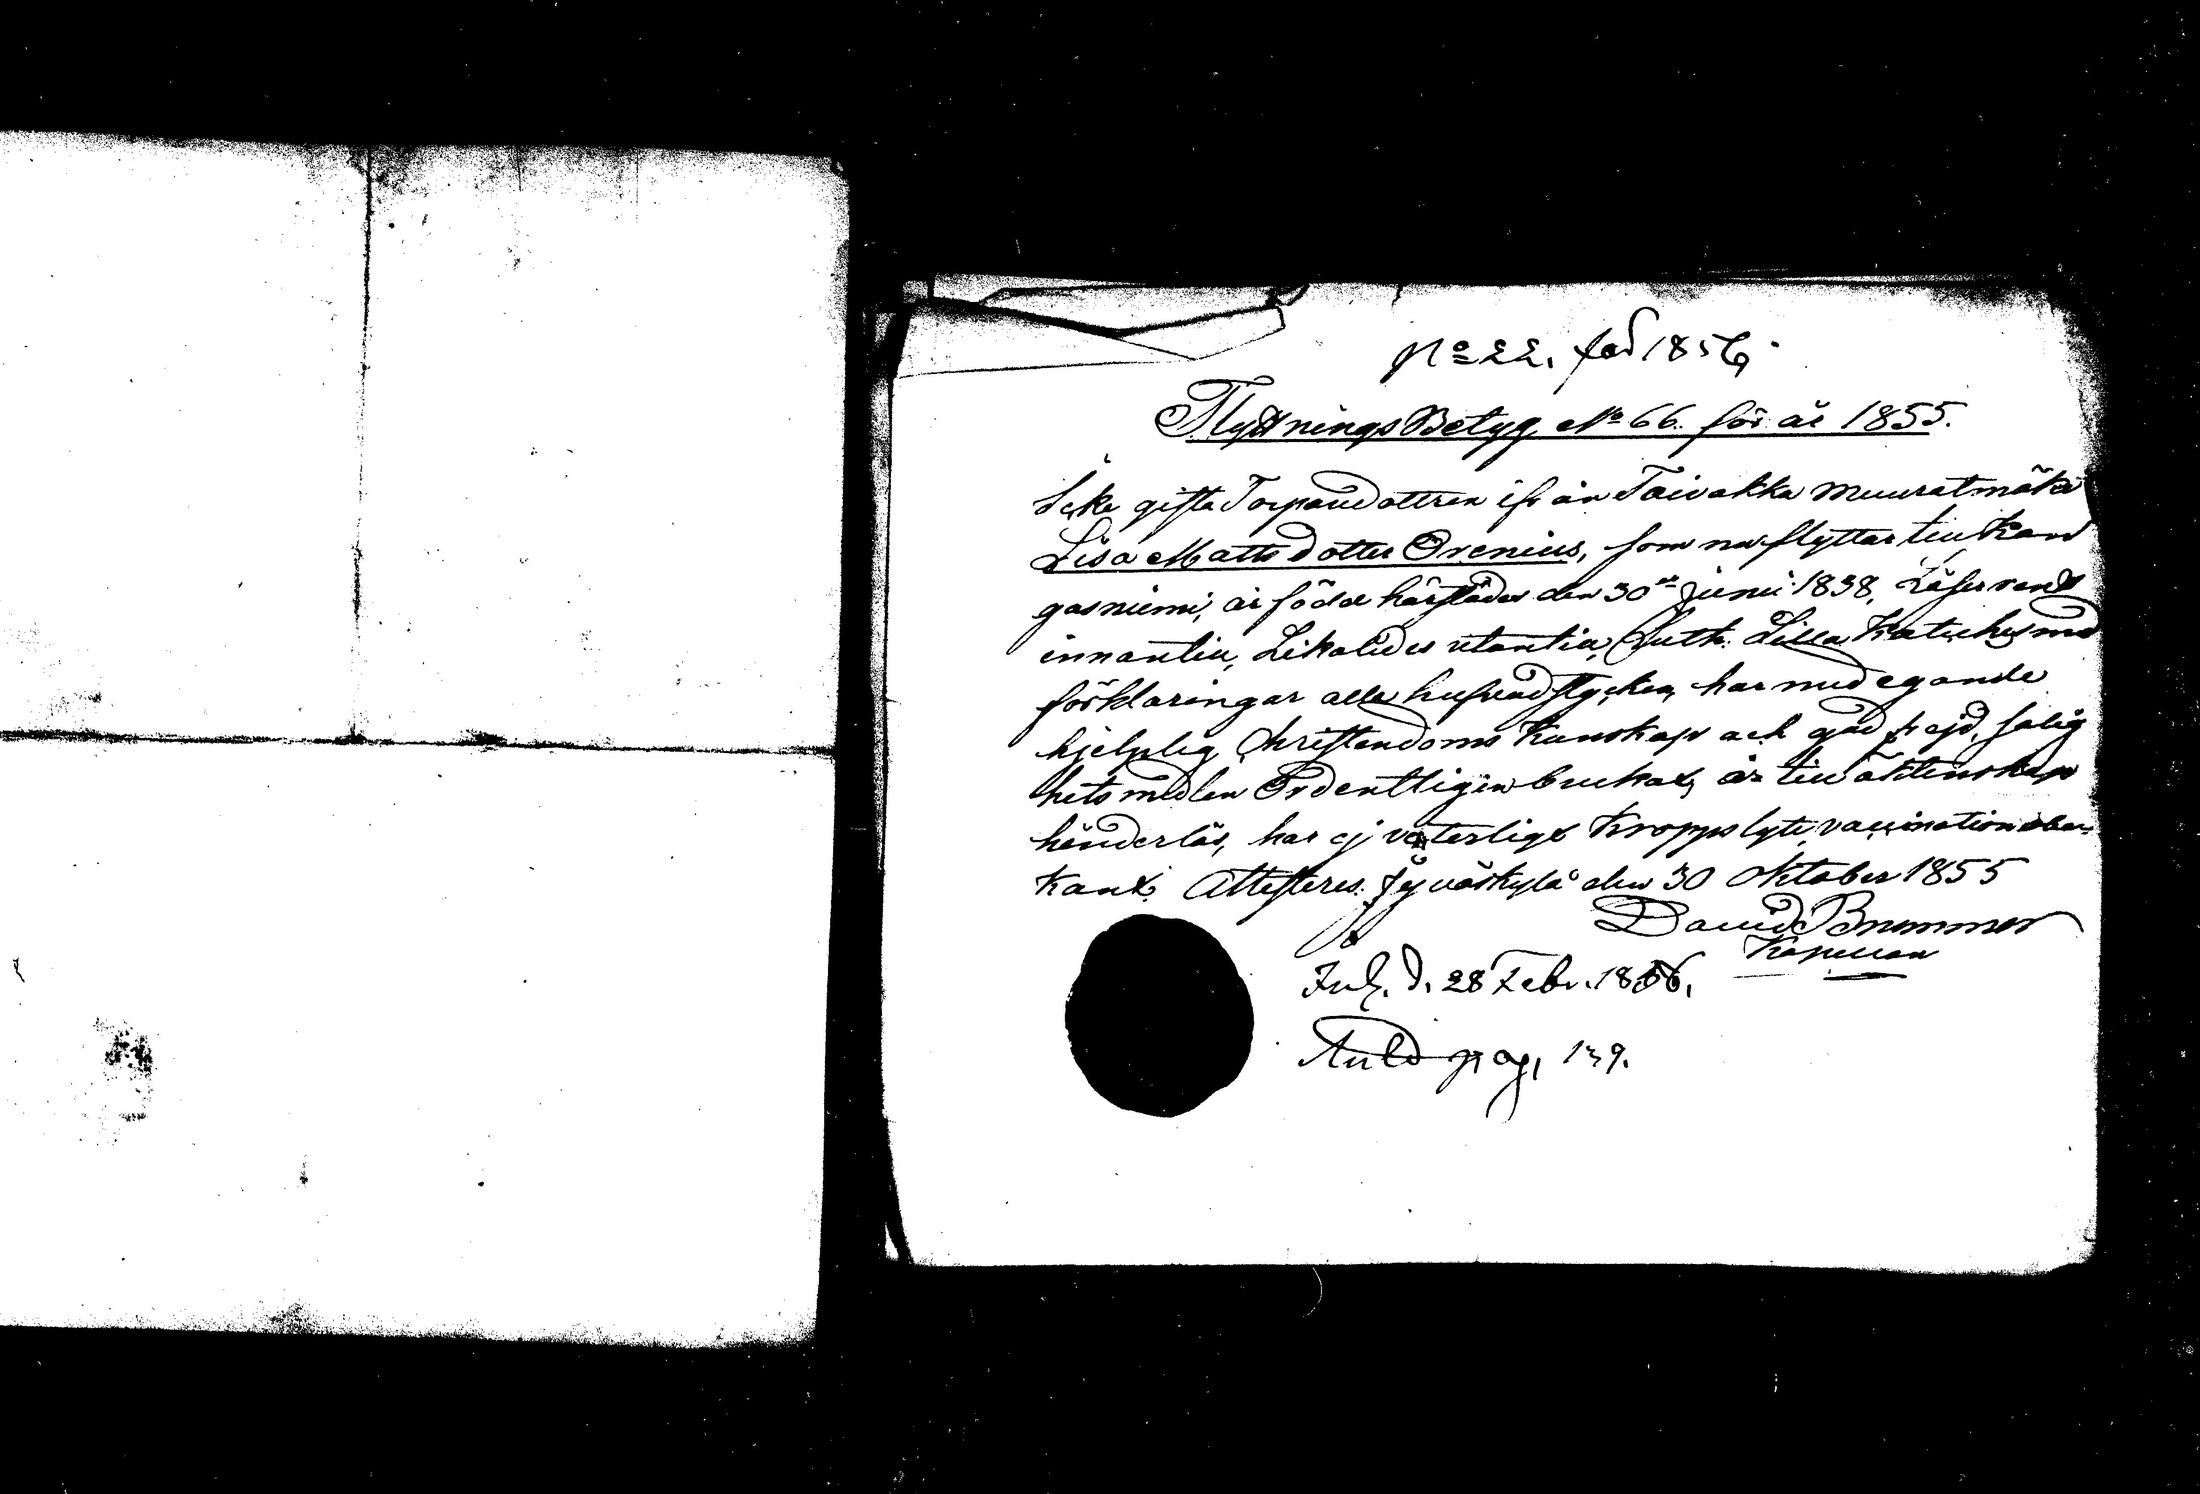 No 22. för 1856.
Flyttnings Betyg No 66. för år 1855.
Icke gifta Torparedottren ifrån Toivakka Muuratmäki
Lisa Mattsdotter Orenius, som nu flyttar till Kan
gasniemi, är född härstädes den 30de Junii 1838, Läser rent
innantill, Likaledes utantill Luth. Lilla Kateches med
förklaringar alla hufvudstycken, har nu egande
hjelplig Christendoms Kunskap och god frejd, salig
hets medlen Ordentligen brukat, är till äktenskap
hinderlös, har ej veterligt Kroppslyte, vaccination obe
kant. Attesteres. Jyväskylä den 30 Oktober 1855
David Brummer
Kapellan
d. 28 Febr. 1856.
pag, 139.